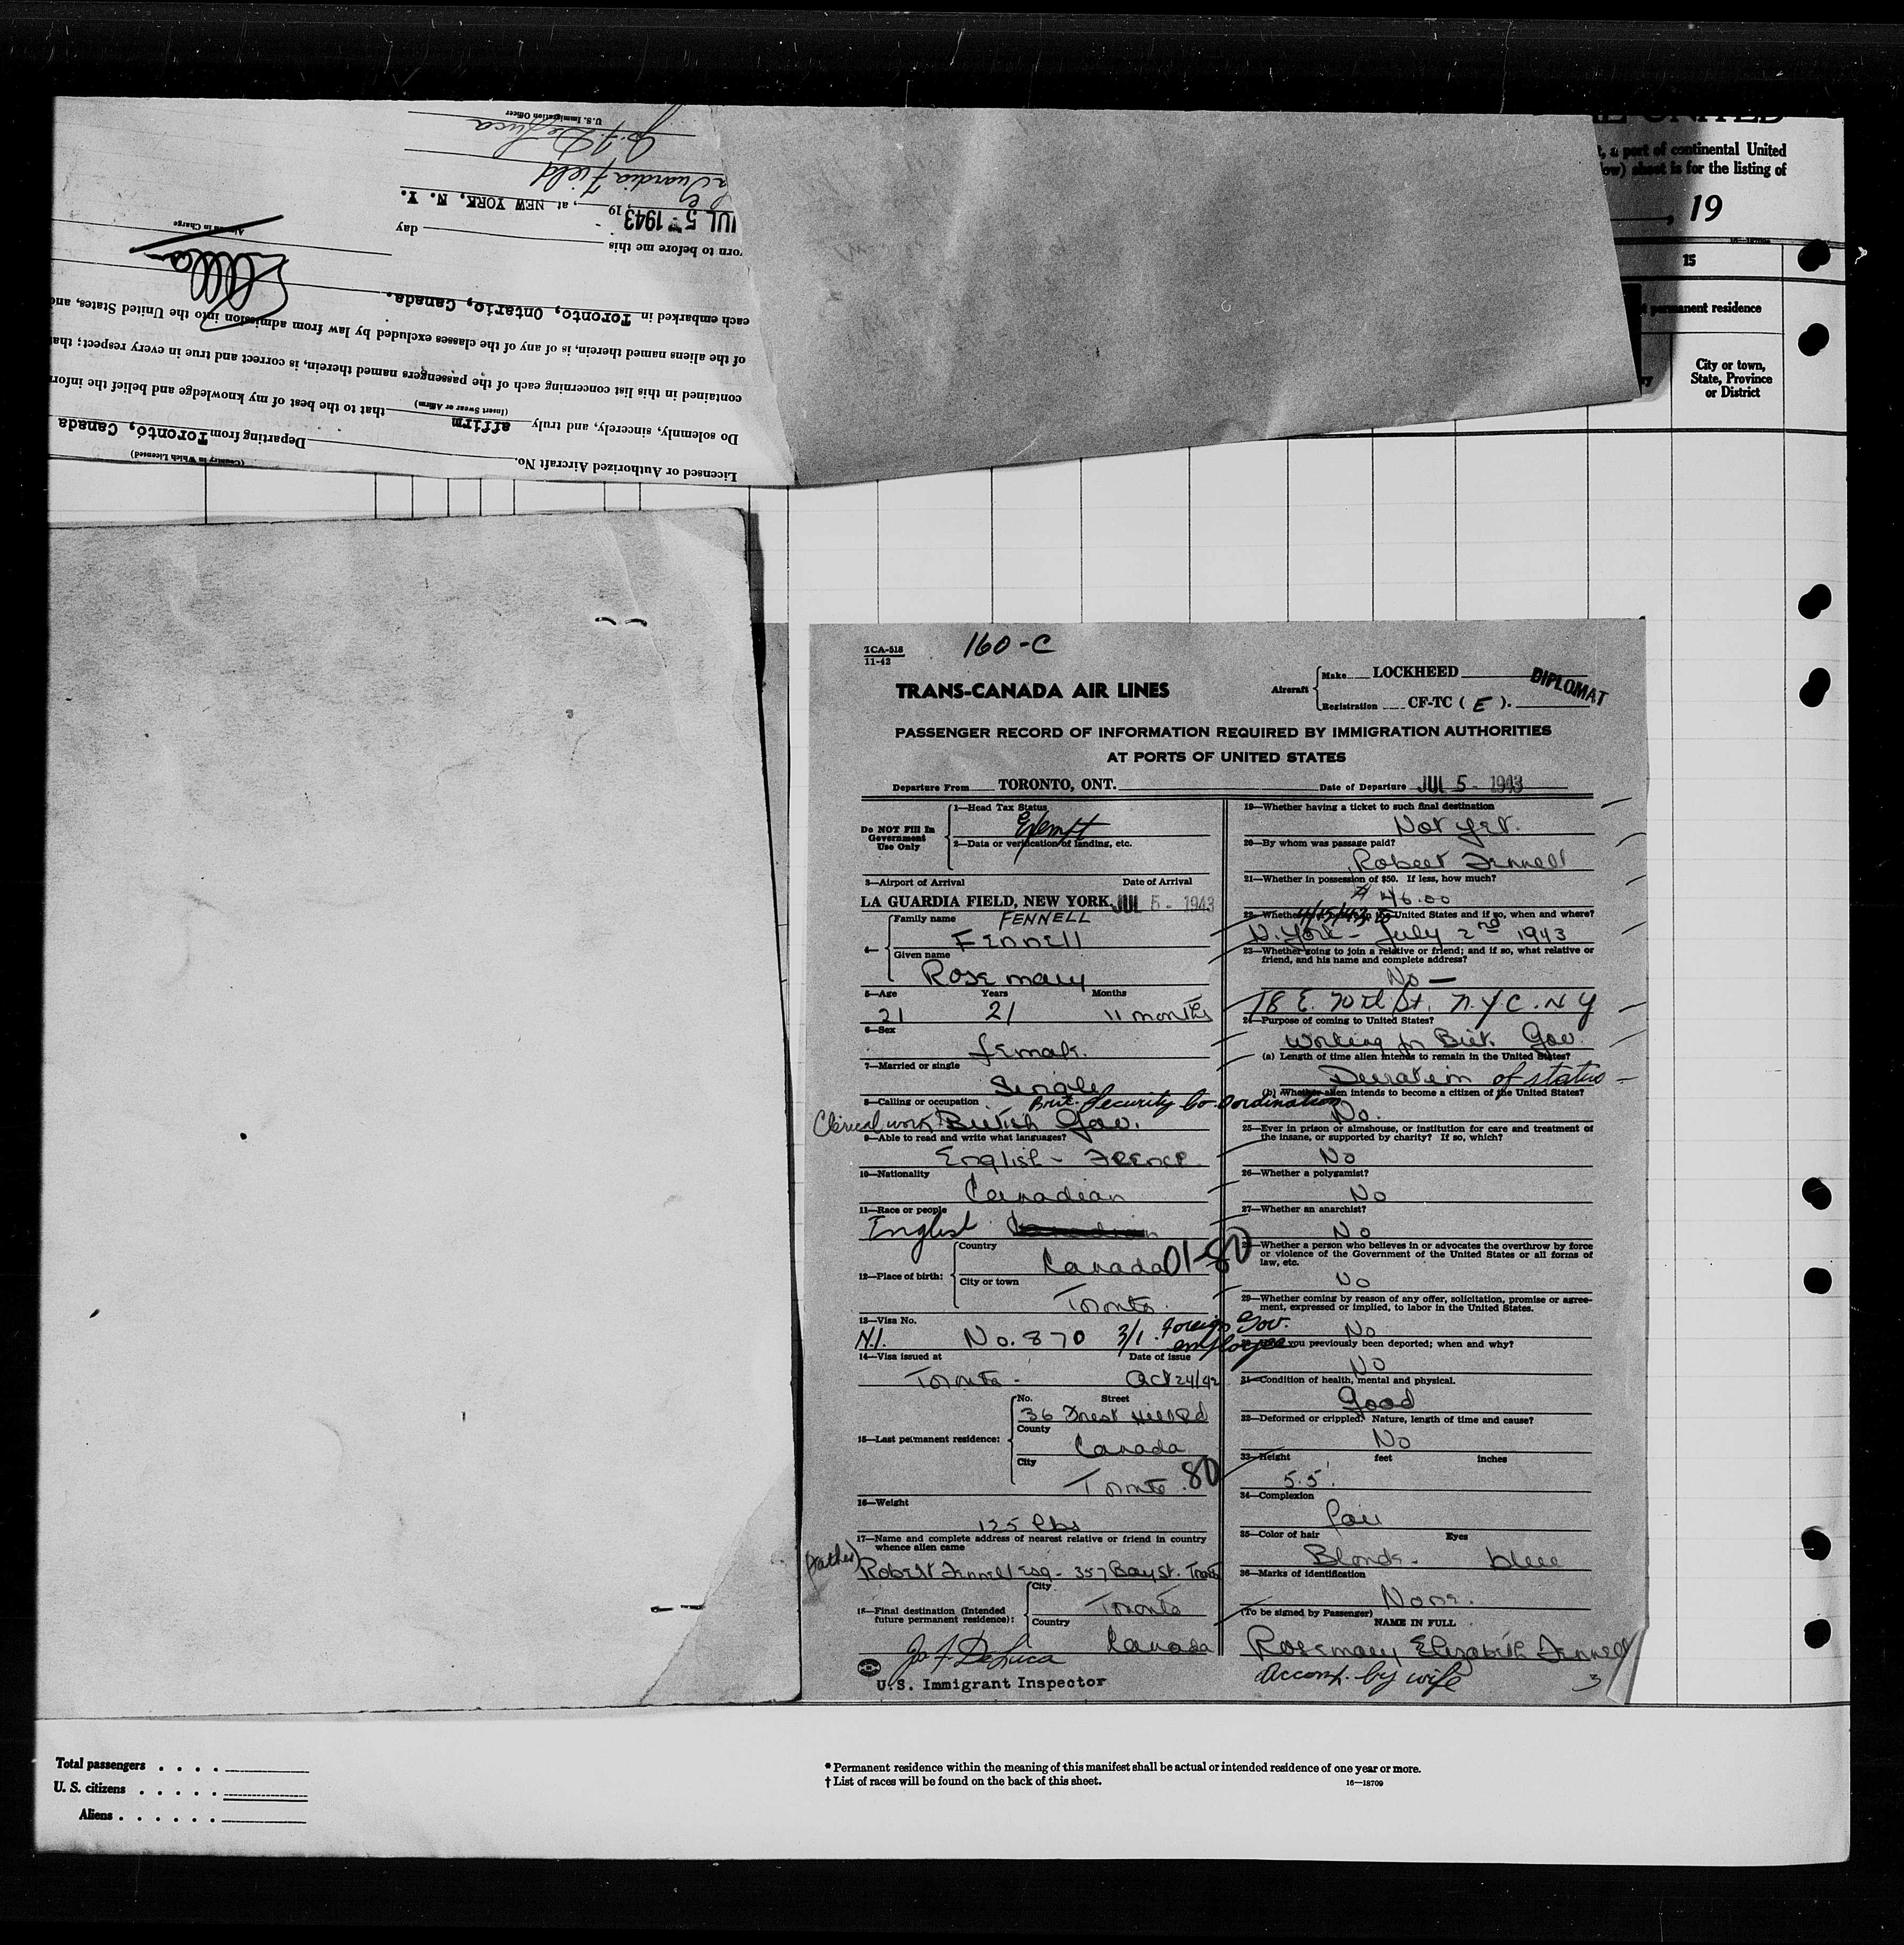 U.S. Immigration Officer
J. F. DeLuca
Guardia Field
JUL 5 - 1943, 19 , at NEW YORK, N. Y.
orn to before me this day
each embarked in Toronto, Ontario, Canada.
of the aliens named therein, is of any of the classes excluded by law from admission into the United States, and
contained in this list concerning each of the passengers named therein, is correct and true in every respect; that
Do solemnly, sincerely, and truly affirm that to the best of my knowledge and belief the infor
(Insert Swear or Affirm)
Licensed or Authorized Aircraft No. Departing from Toronto, Canada
(Country in Which Licensed)
UNITED
, a port of continental United
ow) sheet is for the listing of
, 19
15
permanent residence
City or town,
State, Province
or District
TCA-518
11-42
160-C
TRANS-CANADA AIR LINES
Aircraft
Make LOCKHEED
Registration CF-TC ( E ).
DIPLOMAT
PASSENGER RECORD OF INFORMATION REQUIRED BY IMMIGRATION AUTHORITIES
AT PORTS OF UNITED STATES
Departure From TORONTO, ONT. Date of Departure JUL 5 - 1943
Do NOT Fill In
Government
Use Only
1—Head Tax Status
Exempt
2—Data or verification of landing, etc.
3—Airport of Arrival Date of Arrival
LA GUARDIA FIELD, NEW YORK JUL 5 - 1943
4— Family name FENNELL
Fennell
Given name
Rosemary
5—Age Years Months
21 21 11 months
6—Sex
female
7—Married or single
Single
8—Calling or occupation Brit. Security Co-Ordination
Clerical work British Gov.
9—Able to read and write what languages?
English - French
10—Nationality
Canadian
11—Race or people
English Canadian
12—Place of birth:
Country
Canada 01-80
City or town
Toronto.
13—Visa No.
N.I. No. 870 3/1 foreign Gov. employee
14—Visa issued at Date of issue
Toronto - Oct 24/42
15—Last permanent residence:
No. Street
36 Forest Hill Rd
County
Canada
City
Toronto. 80
16—Weight
125 lbs
17—Name and complete address of nearest relative or friend in country
whence alien came
(father) Robert Fennell Esq - 357 Bay St. Toronto
18—Final destination (Intended
future permanent residence):
City
Toronto
Country
Canada
J. F. DeLuca
U.S. Immigrant Inspector
19—Whether having a ticket to such final destination
Not yet.
20—By whom was passage paid?
Robert Fennell
21—Whether in possession of $50. If less, how much?
$ 46.00
22—Whether ever before in the United States and if so, when and where?
N. York - July 2nd 1943
23—Whether going to join a relative or friend; and if so, what relative or
friend, and his name and complete address?
No —
18 E. 70th St. N.Y.C. N Y
24—Purpose of coming to United States?
Working for Brit. Gov.
(a) Length of time alien intends to remain in the United States?
Duration of status
(b) Whether alien intends to become a citizen of the United States?
No.
25—Ever in prison or almshouse, or institution for care and treatment of
the insane, or supported by charity? If so, which?
No
26—Whether a polygamist?
No
27—Whether an anarchist?
No
28—Whether a person who believes in or advocates the overthrow by force
or violence of the Government of the United States or all forms of
law, etc.
No
29—Whether coming by reason of any offer, solicitation, promise or agree-
ment, expressed or implied, to labor in the United States.
No
you previously been deported; when and why?
No
31—Condition of health, mental and physical.
Good
32—Deformed or crippled? Nature, length of time and cause?
No
33—Height feet inches
5.5'.
34—Complexion
fair
35—Color of hair Eyes
Blonde - blue
36—Marks of identification
None.
(To be signed by Passenger) NAME IN FULL
Rosemary Elizabeth Fennell
accomp. by wife 3
Total passengers . . . .
U. S. citizens . . . . .
Aliens . . . . . .
* Permanent residence within the meaning of this manifest shall be actual or intended residence of one year or more.
† List of races will be found on the back of this sheet.
16—18709